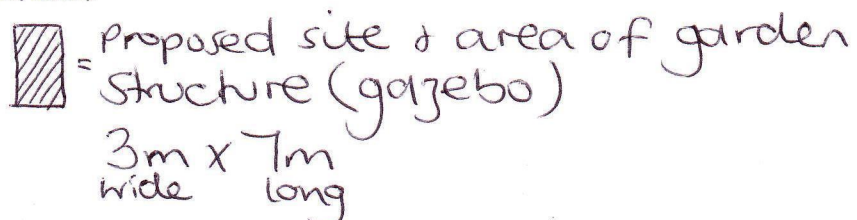 = Proposed site & area of garden
structure (gazebo)
3m x 7m
wide long